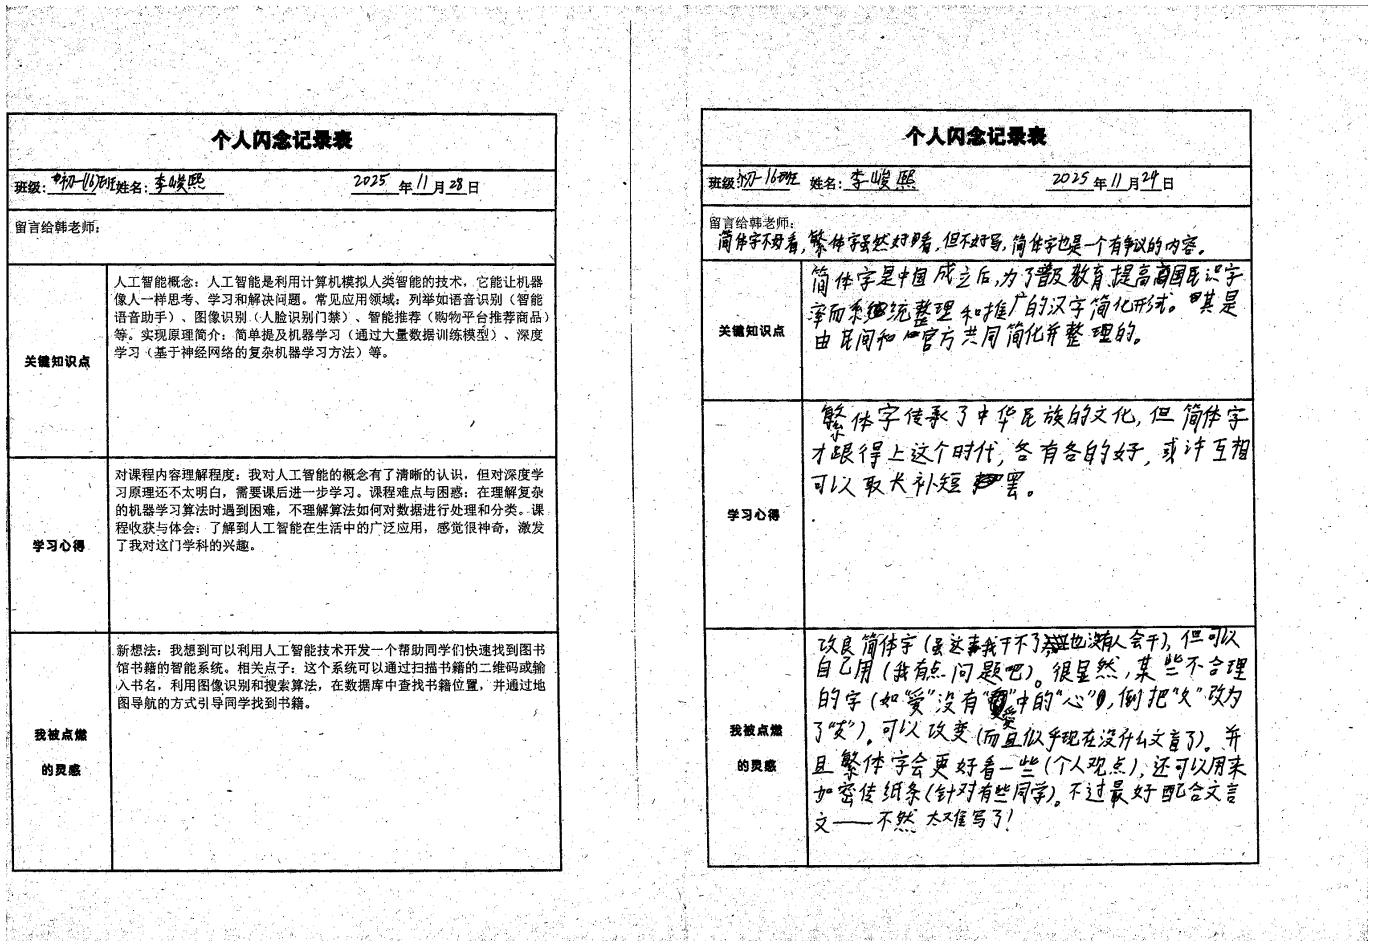 个人闪念记录表
班级：初一(16)班 姓名：李峻熙 2025年11月28日
留言给韩老师：
关键知识点
人工智能概念：人工智能是利用计算机模拟人类智能的技术，它能让机器
像人一样思考、学习和解决问题。常见应用领域：列举如语音识别（智能
语音助手）、图像识别（人脸识别门禁）、智能推荐（购物平台推荐商品）
等。实现原理简介：简单提及机器学习（通过大量数据训练模型）、深度
学习（基于神经网络的复杂机器学习方法）等。
学习心得
对课程内容理解程度：我对人工智能的概念有了清晰的认识，但对深度学
习原理还不太明白，需要课后进一步学习。课程难点与困惑：在理解复杂
的机器学习算法时遇到困难，不理解算法如何对数据进行处理和分类。课
程收获与体会：了解到人工智能在生活中的广泛应用，感觉很神奇，激发
了我对这门学科的兴趣。
我被点燃
的灵感
新想法：我想到可以利用人工智能技术开发一个帮助同学们快速找到图书
馆书籍的智能系统。相关点子：这个系统可以通过扫描书籍的二维码或输
入书名，利用图像识别和搜索算法，在数据库中查找书籍位置，并通过地
图导航的方式引导同学找到书籍。
个人闪念记录表
班级：初一16班 姓名：李峻熙 2025年11月29日
留言给韩老师：
简体字不好看，繁体字虽然好看，但不好写，简体字也是一个有争议的内容。
关键知识点
简体字是中国成立后，为了普及教育，提高国民识字
率而系统整理和推广的汉字简化形式。其是
由民间和官方共同简化并整理的。
学习心得
繁体字传承了中华民族的文化，但简体字
才跟得上这个时代，各有各的好，或许互相
可以取长补短罢。
我被点燃
的灵感
改良简体字（虽达我干不了也没有人会干），但可以
自己用（我有点问题吧）。很显然，某些不合理
的字（如“爱”没有“愛”中的“心”，倒把“夂”改为
了“友”）。可以改变（而且似乎现在没什么文盲了）。并
且繁体字会更好看一些（个人观点），还可以用来
加密传纸条（针对有些同学）。不过最好配合文言
文——不然太难写了！